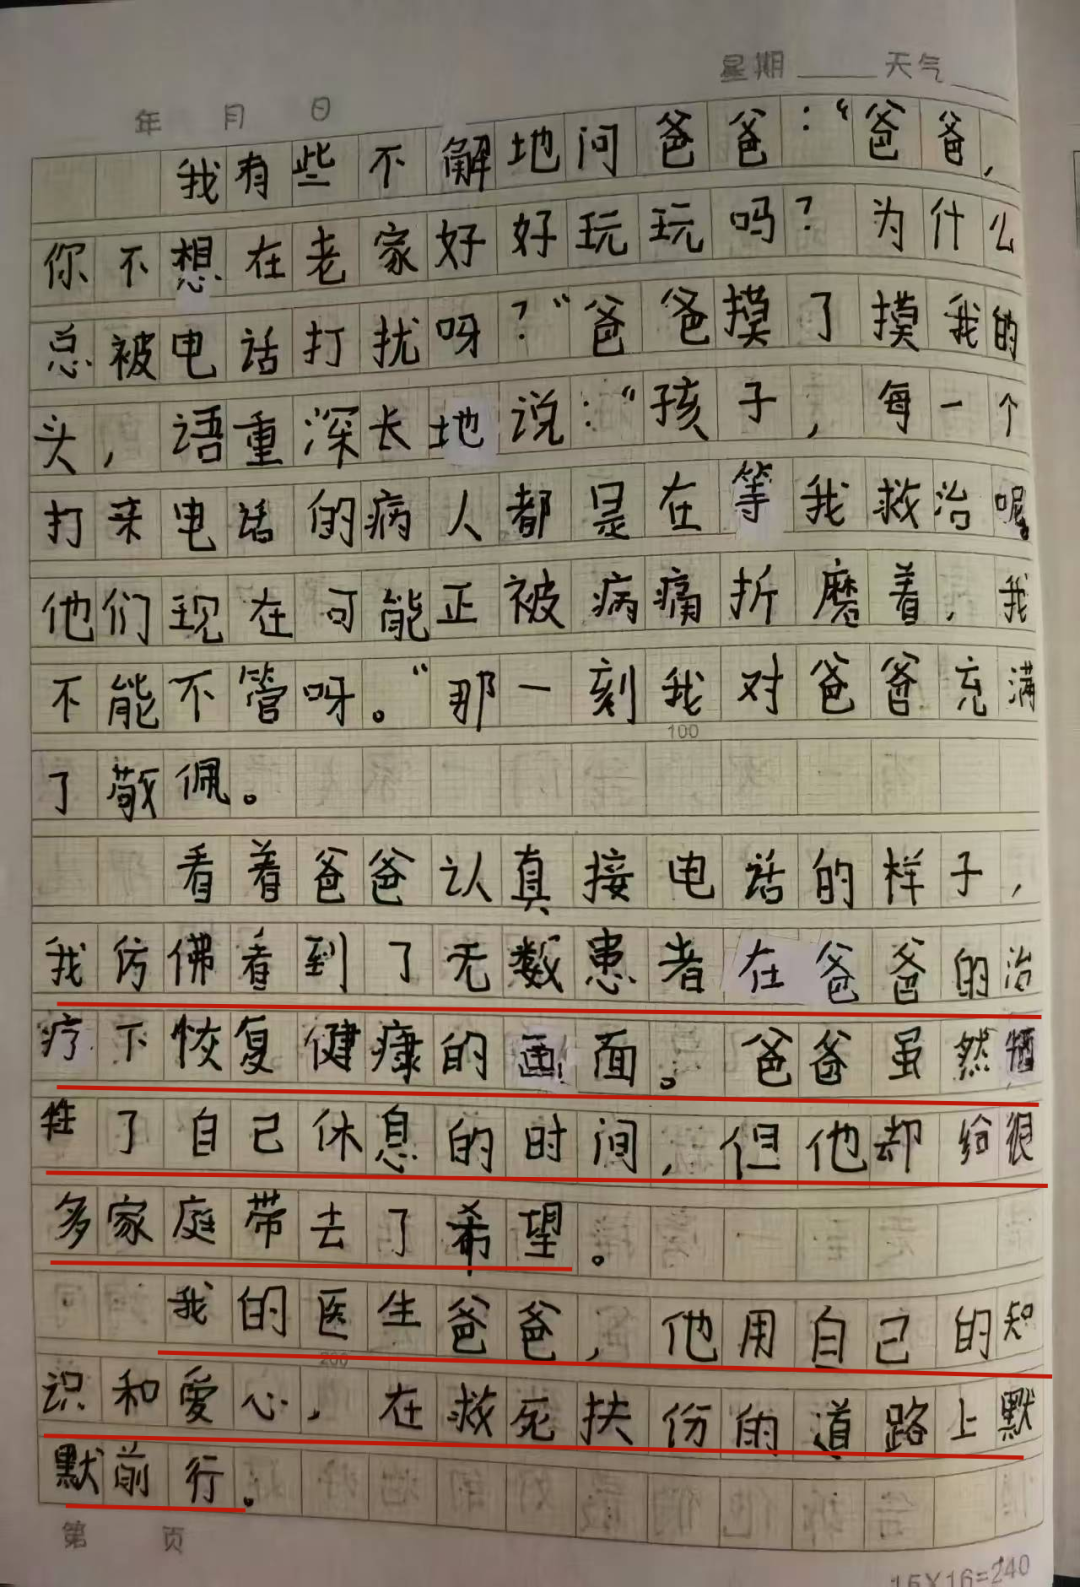 星期 天气
年 月 日
我有些不解地问爸爸：“爸爸，
你不想在老家好好玩玩吗？为什么
总被电话打扰呀？”爸爸摸了摸我的
头，语重深长地说：“孩子，每一个
打来电话的病人都是在等我救治呢。
他们现在可能正被病痛折磨着，我
不能不管呀。”那一刻我对爸爸充满
100
了敬佩。
看着爸爸认真接电话的样子，
我仿佛看到了无数患者在爸爸的治
疗下恢复健康的画面。爸爸虽然牺
牲了自己休息的时间，但他却给很
多家庭带去了希望。
我的医生爸爸，他用自己的知
200
识和爱心，在救死扶份的道路上默
默前行。
第 页
15X16=240